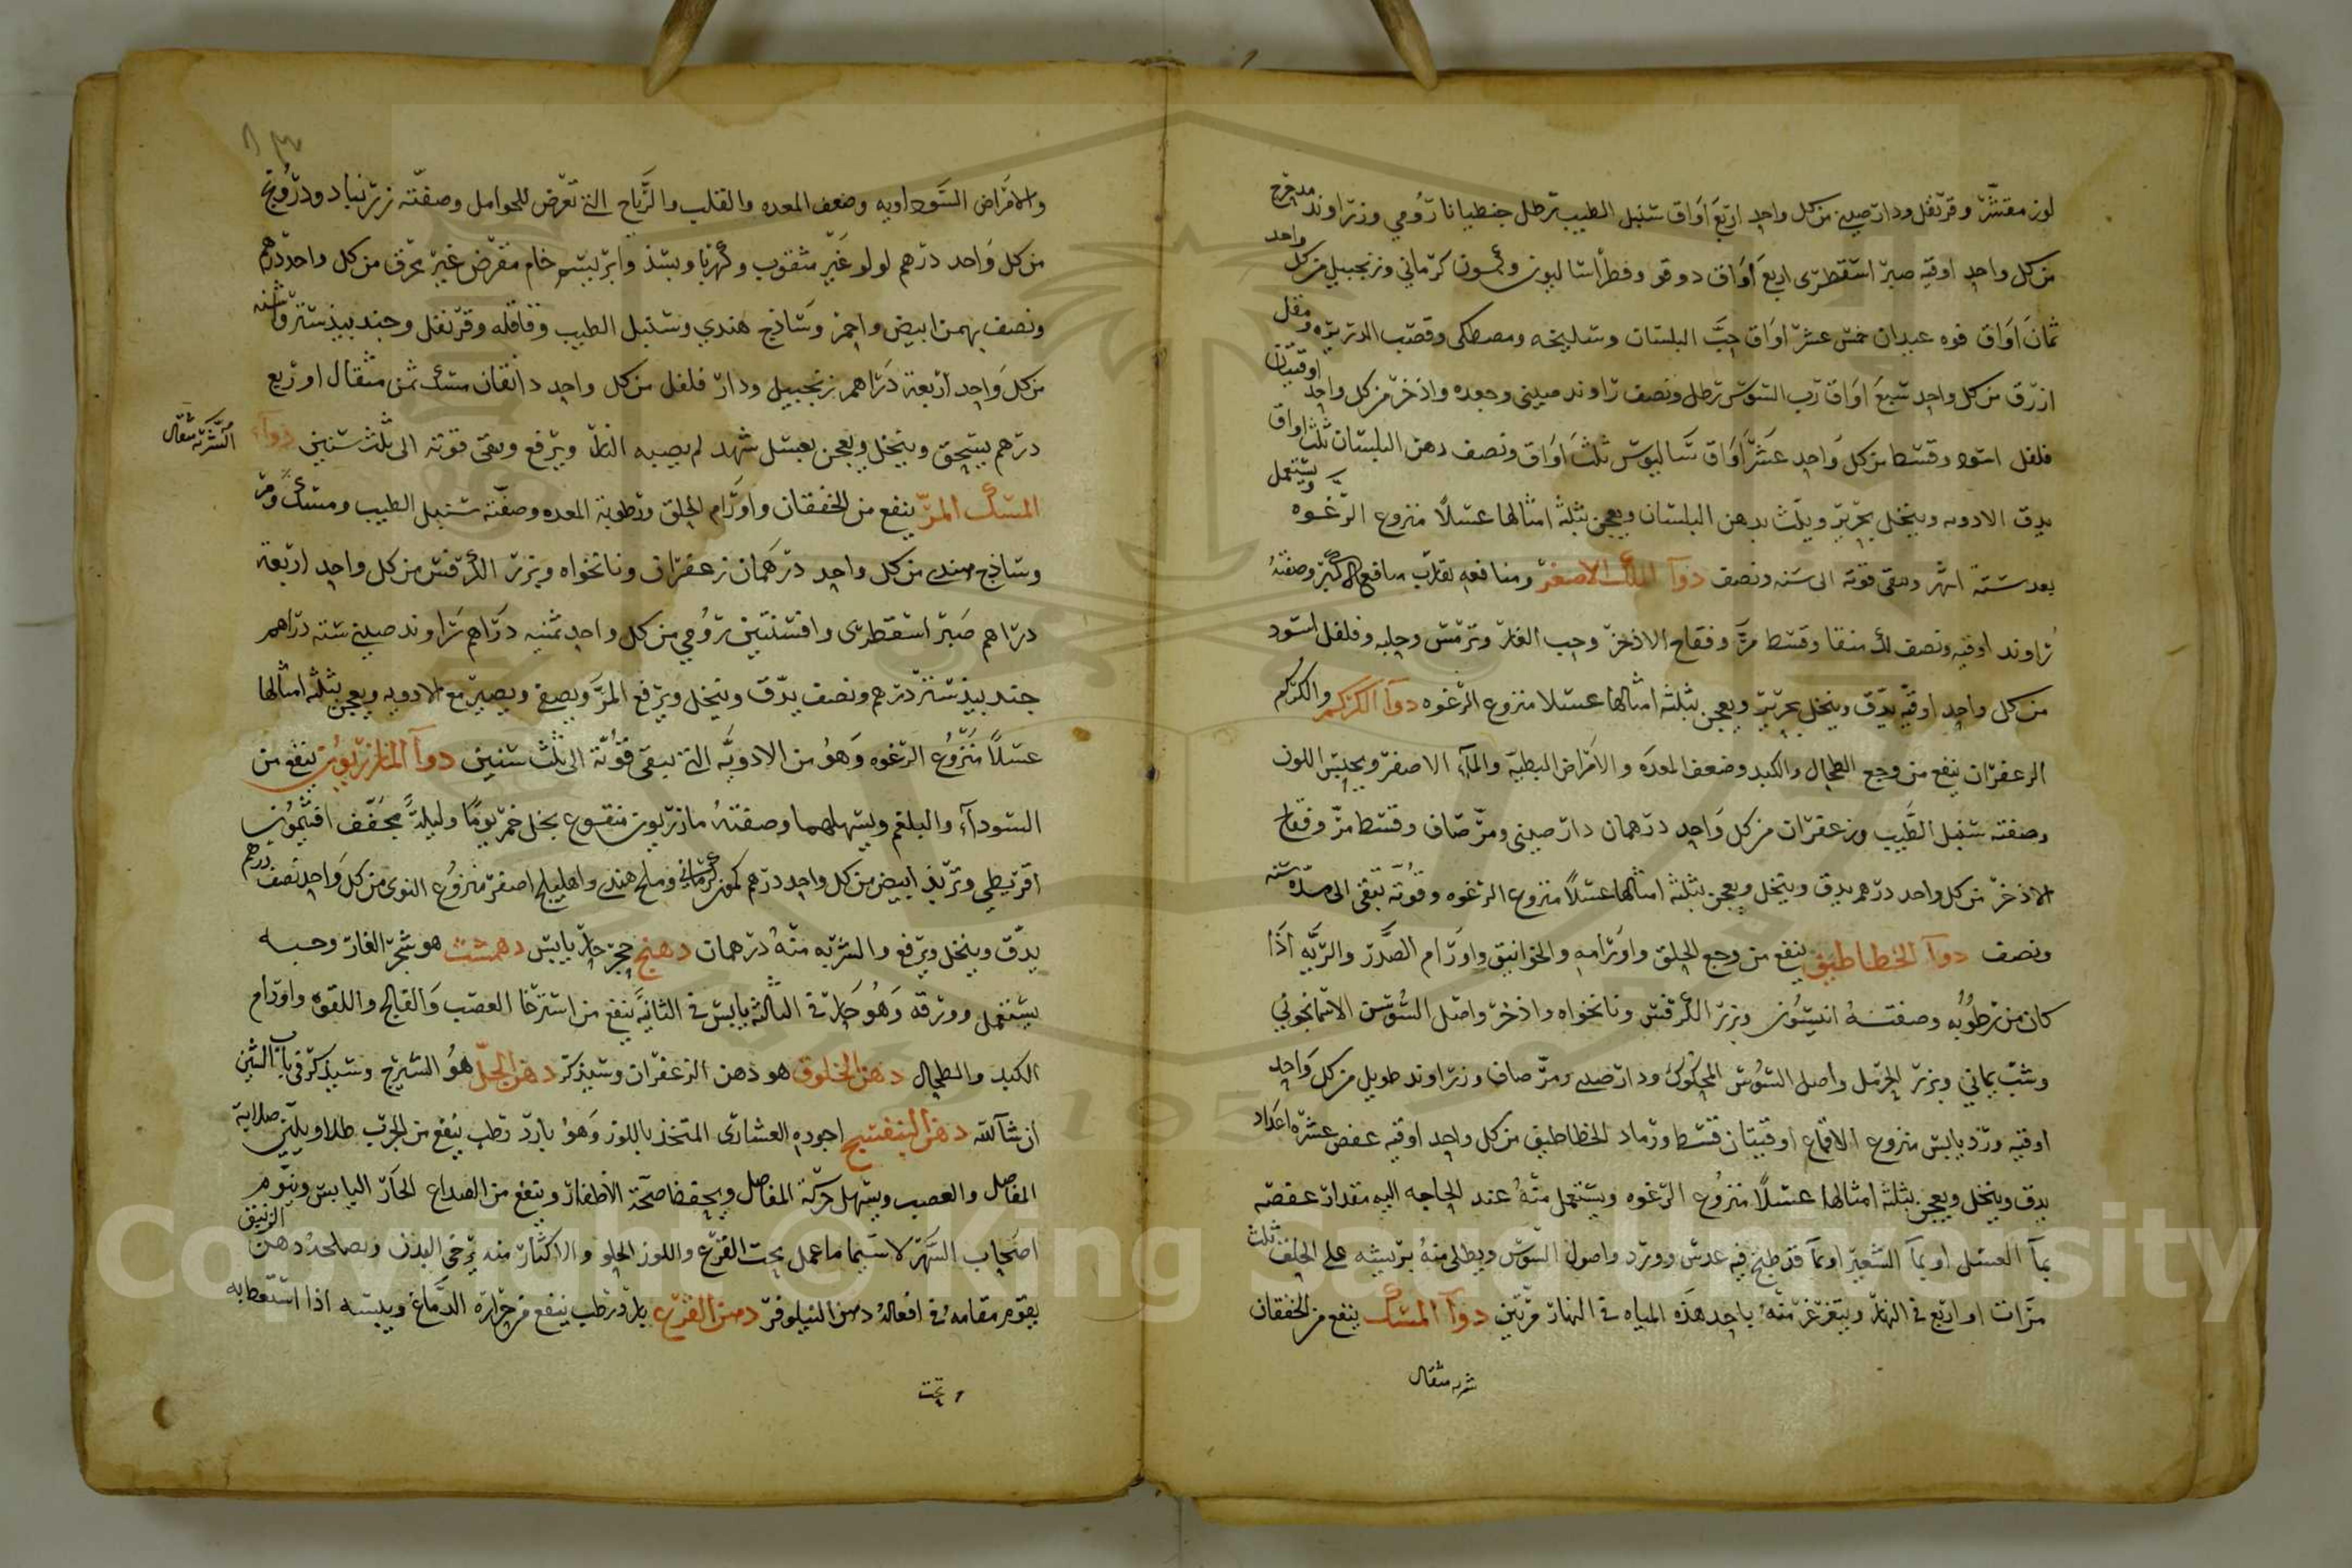 لوز مقشر وقرنفل ودارصيني من كل واحد اربع اواق سنبل الطيب رطل جنطيانا رومي وزراوند مدحرج
من كل واحد اوقيه صبر اسقطرى اربع اواق دوقو وفطراساليون وكمون كرماني وزنجبيل من كل واحد
ثمان اواق فوه عيدان خمس عشر اواق حب البلسان وسليخه ومصطكى وقصب الذريره ومقل
ازرق من كل واحد سبع اواق رب السوس رطل ونصف راوند صيني وجعده واذخر من كل واحد اوقيتان
فلفل اسود وقسط من كل واحد عشر اواق ساليوس ثلث اواق ونصف دهن البلسان ثلث اواق
يدق الادويه وينخل بحرير ويلت بدهن البلسان ويعجن بثلثة امثالها عسلا منزوع الرغوه ويستعمل
بعد ستة اشهر وتبقى قوته الى سنه ونصف دوآ الملك الاصغر ومنافعه تقارب منافع الاكبر وصفته
راوند اوقيه ونصف لك منقا وقسط مر وفقاح الاذخر وحب الغار وترمس وحلبه وفلفل اسود
من كل واحد اوقيه يدق وينخل بحرير ويعجن بثلثه امثالها عسلا منزوع الرغوه دوآ الكركم والكركم
الزعفران ينفع من وجع الطحال والكبد وضعف المعده والامراض البطيه والمآء الاصفر ويحسن اللون
وصفته سنبل الطيب وزعفران من كل واحد درهمان دارصيني ومر صاف وقسط مر وفقاح
الاذخر من كل واحد درهم يدق وينخل ويعجن بثلثه امثالها عسلا منزوع الرغوه وقوته تبقى الى مدة سنه
ونصف دوآ الخطاطيف ينفع من وجع الحلق واورامه والخوانيق واورام الصدر والريه اذا
كان من رطوبه وصفته انيسون وبزر الكرفس ونانخواه واذخر واصل السوس الاسمانجوني
وشب يماني وبزر الحرمل واصل السوس المحكوك ودارصيني ومر صاف وزراوند طويل من كل واحد
اوقيه ورد يابس منزوع الاقماع اوقيتان قسط ورماد الخطاطيف من كل واحد اوقيه عفص عشره اعداد
يدق وينخل ويعجن بثلثة امثالها عسلا منزوع الرغوه ويستعمل منه عند الحاجه اليه مقدار عفصه
بمآ العسل او بمآ الشعير او بمآ قد طبخ فيه عدس وورد واصول السوس ويطلى منه بريشه على الحلق ثلث
مرات او اربع في النهار ويتغرغر منه باحد هذه المياه في النهار مرتين دوآ المسك ينفع من الخفقان
شربه مثقال
والامراض السوداويه وضعف المعده والقلب والرياح التي تعرض للحوامل وصفته زرنباد ودرونج
من كل واحد درهم لولو غير مثقوب وكهربا وبسذ وابريسم خام مقرض غير محرق من كل واحد درهم
ونصف بهمن ابيض واحمر وساذج هندي وسنبل الطيب وقاقله وقرنفل وجندبيذستر واشنه
من كل واحد اربعة دراهم زنجبيل ودار فلفل من كل واحد دانقان مسك ثمن مثقال او ربع
درهم يسحق وينخل ويعجن بعسل شهد لم يصبه النار ويرفع وتبقى قوته الى ثلث سنين دوآء
الشربه مثقال
المسك المر ينفع من الخفقان واورام الحلق ورطوبة المعده وصفته سنبل الطيب ومسك ومر
وساذج هندي من كل واحد درهمان زعفران ونانخواه وبزر الكرفس من كل واحد اربعة
دراهم صبر اسقطرى وافسنتين رومي من كل واحد ثمنيه دراهم راوند صيني ستة دراهم
جندبيذستر درهم ونصف يدق وينخل ويرفع المر ويصفى ويصير مع الادويه ويعجن بثلثة امثالها
عسلا منزوع الرغوه وهو من الادويه التي تبقى قوته الى ثلث سنين دوآ المازريون ينفع من
السودآء والبلغم ويسهلهما وصفته مازريون منقوع بخل خمر يوما وليلة مجفف افتيمون
اقريطي وتربذ ابيض من كل واحد درهم كمون كرماني وملح هندي واهليلج اصفر منزوع النوى من كل واحد نصف درهم
يدق وينخل ويرفع والشربه منه درهمان دهنج حجر حار يابس دهمشت هو شجر الغار وحبه
يستعمل وورقه وهو حار في الثالثه يابس في الثانيه ينفع من استرخا العصب والفالج واللقوه واورام
الكبد والطحال دهن الخلوق هو دهن الزعفران وسيذكر دهن الحل هو الشيرج وسيذكر في باب الشين
ان شآ الله دهن البنفسج اجوده العشارى المتخذ باللوز وهو بارد رطب ينفع من الجرب طلا ويلين صلابة
المفاصل والعصب ويسهل حركة المفاصل ويحفظ صحة الاظفار وينفع من الصداع الحار اليابس وينوم
اصحاب السهر لاسيما ما عمل بحب القرع واللوز الحلو والاكثار منه يرخي البدن ويصلحه دهن الزنبق
يقوم مقامه في افعاله دهن النيلوفر دهن القرع بارد رطب ينفع من حرارة الدماغ ويبسه اذا استعط به